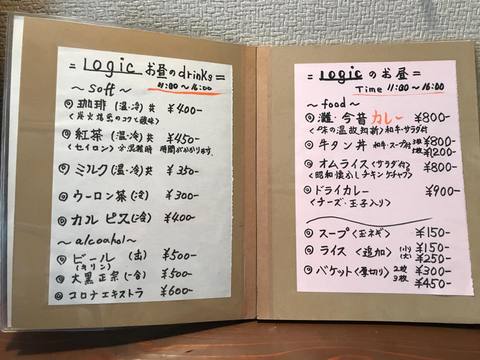 = Logic お昼のdrinks =
11:00~16:00
~soft~
◎珈琲(温・冷)共 ¥400-
<炭火焙煎のコクと酸味>
◎紅茶(温・冷)共 ¥450-
<セイロン>
◎ミルク(温・冷)共 ¥350-
◎ウーロン茶(冷) ¥300-
◎カルピス(冷) ¥400-
~alcoahol~
◎ビール(缶) ¥500-
(キリン)
◎大黒正宗(一合) ¥500-
◎コロナエキストラ ¥600-
= Logicのお昼 =
Time 11:00~16:00
~food~
◎灘・今昔カレー ¥800-
<味の温故知新>和牛・サラダ付
◎牛タン丼 和牛・スープ付 ¥800-
¥1200-
◎オムライス<サラダ付> ¥800-
<昭和懐かしチキンケチャップ>
◎ドライカレー ¥900-
<チーズ・玉子入り>
◎スープ<玉ネギ> ¥150-
◎ライス<追加> (小) ¥150-
(大) ¥250-
◎バケット<厚切り> 2枚 ¥300-
3枚 ¥450-